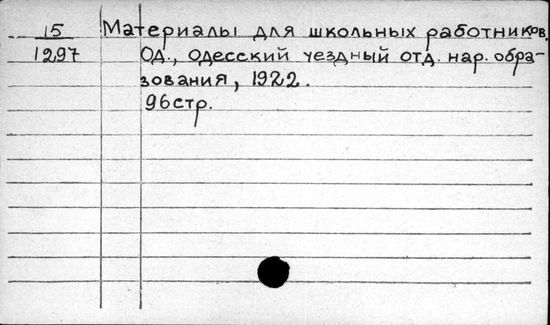 15 Материалы для школьных работников.
1297 Од., Одесский уездный отд. нар. обра-
зования, 1922.
96стр.